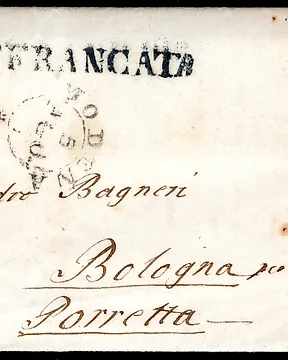 FRANCATA
MODEN
5
AGO
dro Bagneri
Bologna per
Porretta